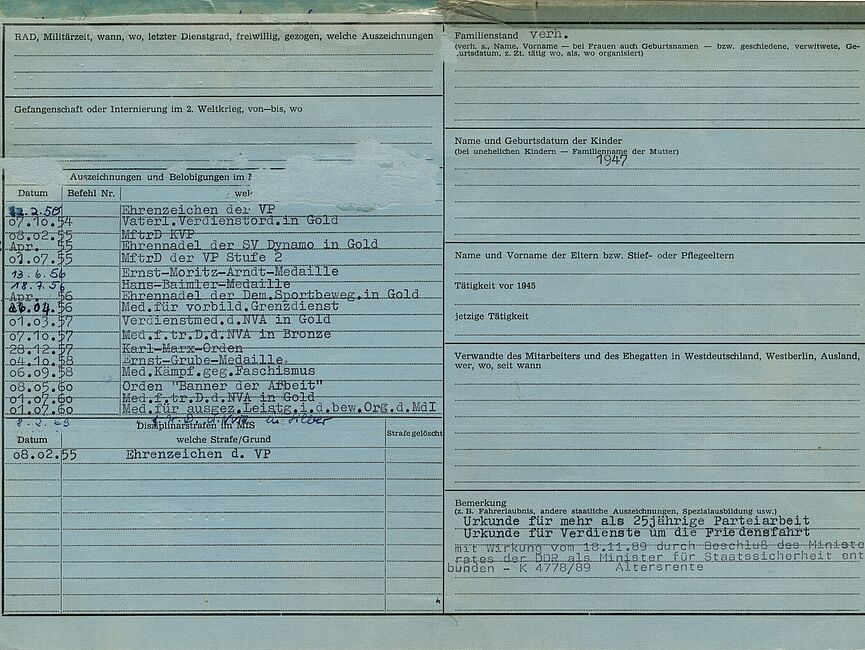 RAD, Militärzeit, wann, wo, letzter Dienstgrad, freiwillig, gezogen, welche Auszeichnungen
Gefangenschaft oder Internierung im 2. Weltkrieg, von—bis, wo
Auszeichnungen und Belobigungen im
Datum Befehl Nr. wel
2.50 Ehrenzeichen der VP
07.10.54 Vaterl.Verdienstord.in Gold
08.02.55 MftrD KVP
Apr. 55 Ehrennadel der SV Dynamo in Gold
01.07.55 MftrD der VP Stufe 2
13.6.56 Ernst-Moritz-Arndt-Medaille
18.7.56 Hans-Baimler-Medaille
Apr. 56 Ehrennadel der Dem.Sportbeweg.in Gold
04.56 Med.für vorbild.Grenzdienst
01.03.57 Verdienstmed.d.NVA in Gold
07.10.57 Med.f.tr.D.d.NVA in Bronze
28.12.57 Karl-Marx-Orden
04.10.58 Ernst-Grube-Medaille
06.09.58 Med.Kämpf.geg.Faschismus
08.05.60 Orden "Banner der Arbeit"
01.07.60 Med.f.tr.D.d.NVA in Gold
01.07.60 Med.für ausgez.Leistg.i.d.bew.Org.d.MdI
8.2.63 f.tr.D. d. NVA in Silber
Disziplinarstrafen im MfS
Datum welche Strafe/Grund Strafe gelöscht
08.02.55 Ehrenzeichen d. VP
Familienstand verh.
(verh. s., Name, Vorname — bei Frauen auch Geburtsnamen — bzw. geschiedene, verwitwete, Ge-
urtsdatum, z. Zt. tätig wo, als, wo organisiert)
Name und Geburtsdatum der Kinder
(bei unehelichen Kindern — Familienname der Mutter)
1947
Name und Vorname der Eltern bzw. Stief- oder Pflegeeltern
Tätigkeit vor 1945
jetzige Tätigkeit
Verwandte des Mitarbeiters und des Ehegatten in Westdeutschland, Westberlin, Ausland,
wer, wo, seit wann
Bemerkung
(z. B. Fahrerlaubnis, andere staatliche Auszeichnungen, Spezialausbildung usw.)
Urkunde für mehr als 25jährige Parteiarbeit
Urkunde für Verdienste um die Friedensfahrt
mit Wirkung vom 18.11.89 durch Beschluß des Ministe
rates der DDR als Minister für Staatssicherheit ent
bunden - K 4778/89 Altersrente